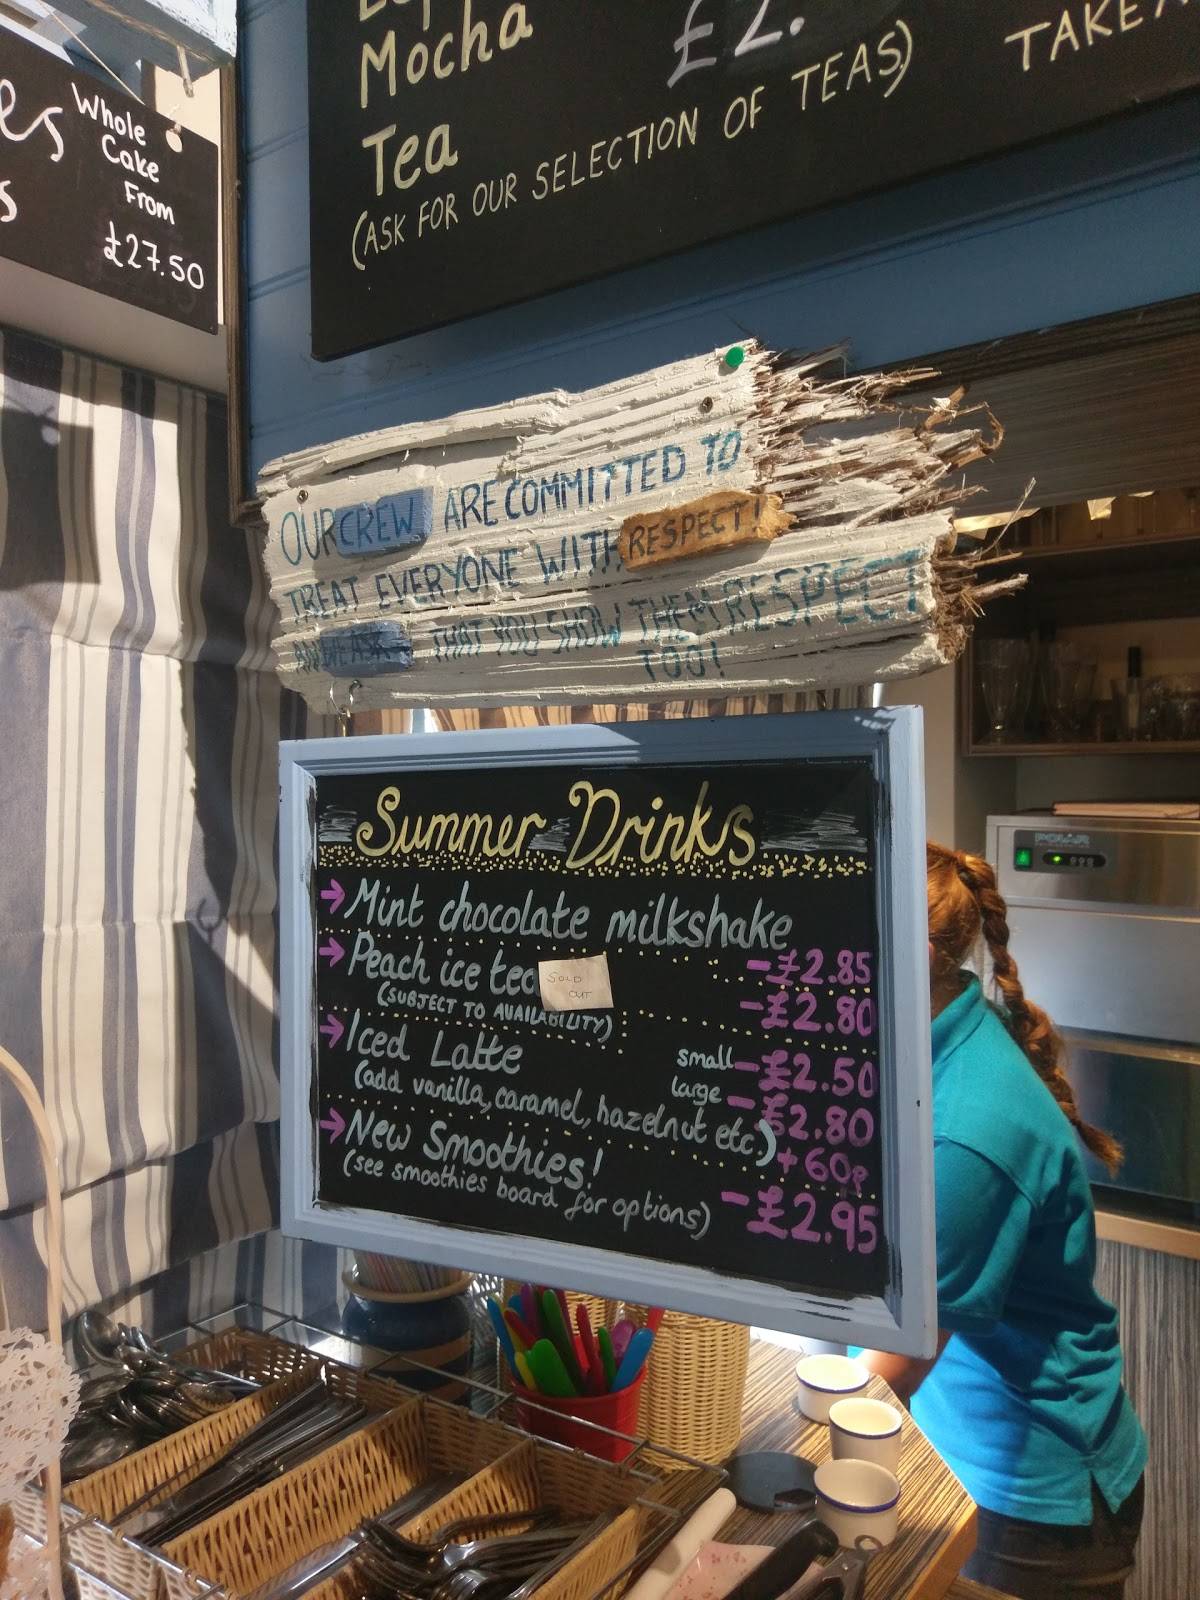 Mocha
£2.
Tea
(ASK FOR OUR SELECTION OF TEAS)
Whole
Cake
From
£27.50
OUR CREW ARE COMMITTED TO
TREAT EVERYONE WITH RESPECT!
AND WE ASK THAT YOU SHOW THEM RESPECT
TOO!
Summer Drinks
→ Mint chocolate milkshake
-£2.85
→ Peach ice tea
SOLD
OUT
-£2.80
(SUBJECT TO AVAILABILITY)
→ Iced Latte
small -£2.50
large -£2.80
(add vanilla, caramel, hazelnut etc.) +60p
→ New Smoothies!
(see smoothies board for options) -£2.95
POLAR